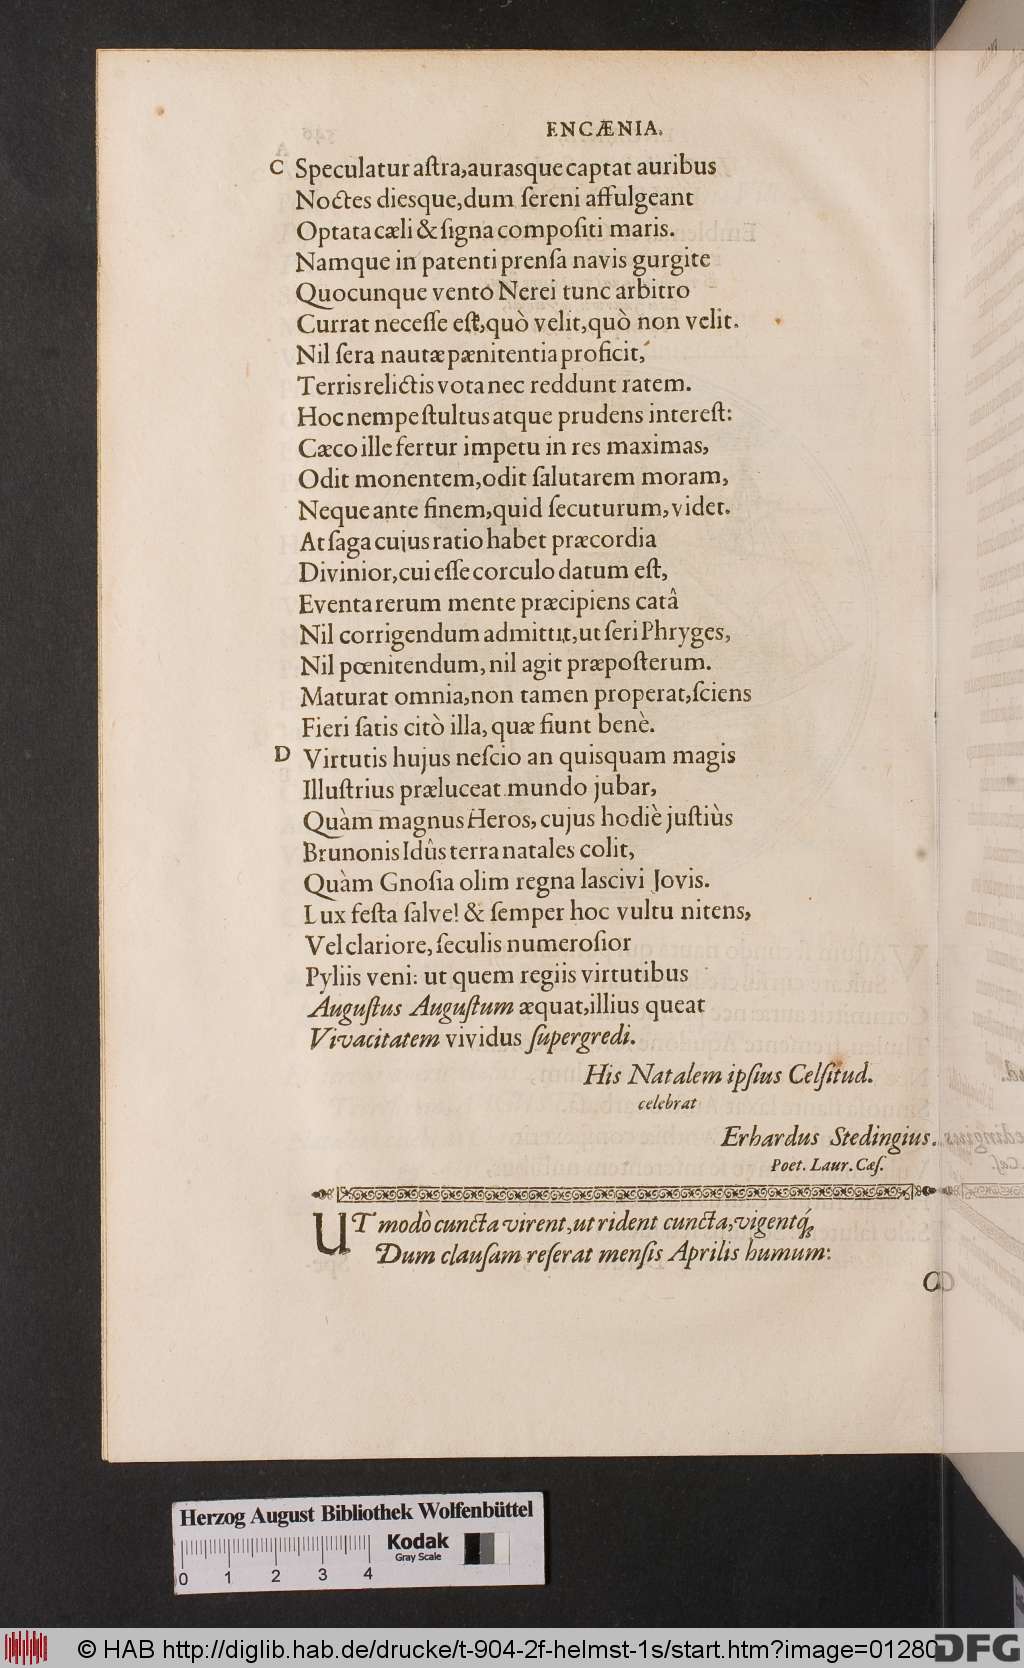 ENCÆNIA.
C Speculatur aſtra, aurasque captat auribus
Noctes diesque, dum ſereni affulgeant
Optata cæli & ſigna compoſiti maris.
Namque in patenti prenſa navis gurgite
Quocunque vento Nerei tunc arbitro
Currat neceſſe eſt, quò velit, quò non velit.
Nil ſera nautæ pænitentia proficit,
Terris relictis vota nec reddunt ratem.
Hoc nempe ſtultus atque prudens intereſt:
Cæco ille fertur impetu in res maximas,
Odit monentem, odit ſalutarem moram,
Neque ante finem, quid ſecuturum, videt.
At ſaga cujus ratio habet præcordia
Divinior, cui eſſe corculo datum eſt,
Eventa rerum mente præcipiens catâ
Nil corrigendum admittit, ut ſeri Phryges,
Nil pœnitendum, nil agit præpoſterum.
Maturat omnia, non tamen properat, ſciens
Fieri ſatis citò illa, quæ fiunt benè.
D Virtutis hujus neſcio an quisquam magis
Illuſtrius præluceat mundo jubar,
Quàm magnus Heros, cujus hodiè juſtiùs
Brunonis Idûs terra natales colit,
Quàm Gnoſia olim regna lascivi Jovis.
Lux feſta ſalve! & ſemper hoc vultu nitens,
Vel clariore, ſeculis numeroſior
Pyliis veni: ut quem regiis virtutibus
Auguſtus Auguſtum æquat, illius queat
Vivacitatem vividus ſupergredi.
His Natalem ipſius Celſitud.
celebrat
Erhardus Stedingius.
Poet. Laur. Cæſ.
UT modò cuncta virent, ut rident cuncta, vigentq́;
Dum clauſam reſerat menſis Aprilis humum:
Herzog August Bibliothek Wolfenbüttel
Kodak
Gray Scale
0 1 2 3 4
© HAB http://diglib.hab.de/drucke/t-904-2f-helmst-1s/start.htm?image=01280
DFG